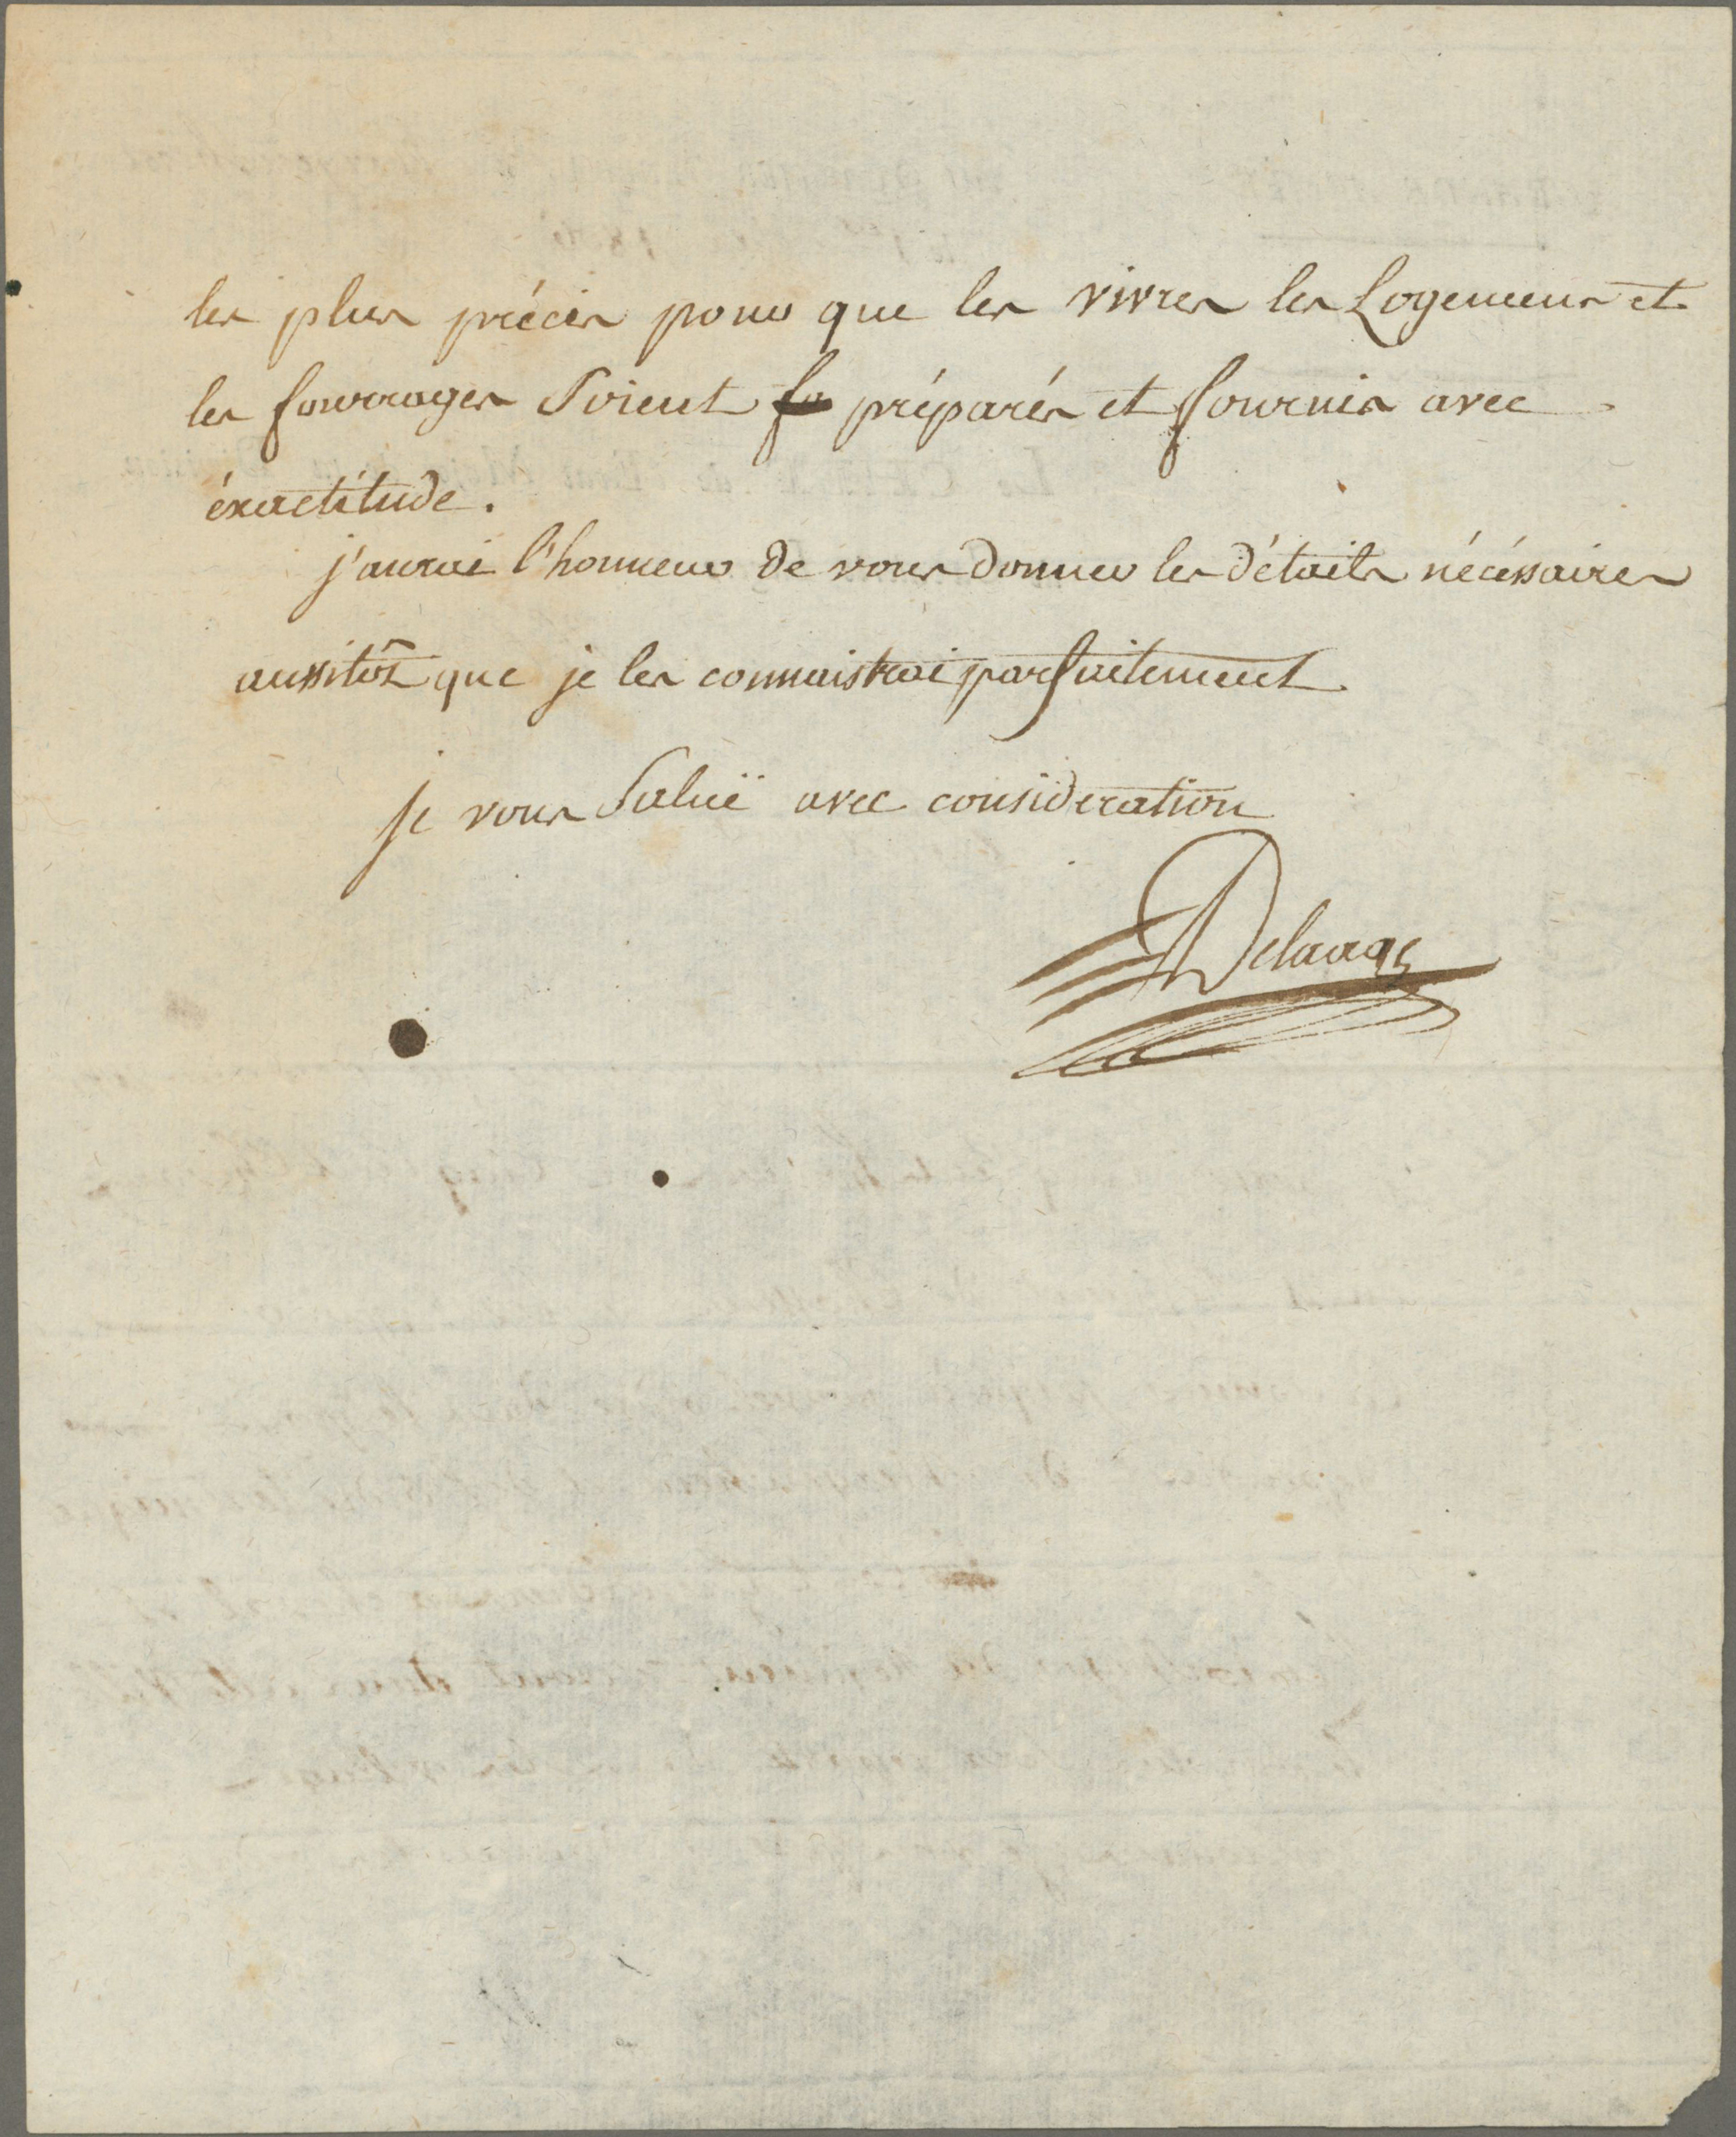 les plus précis pour que les vivres les Logemens et
les fourrages Soient fo préparés et fournis avec
éxactitude.
j'aurai l'honneur de vous donner les détails nécéssaires
aussitôt que je les connaistrai parfaitement
je vous Saluë avec consideration
Delaage